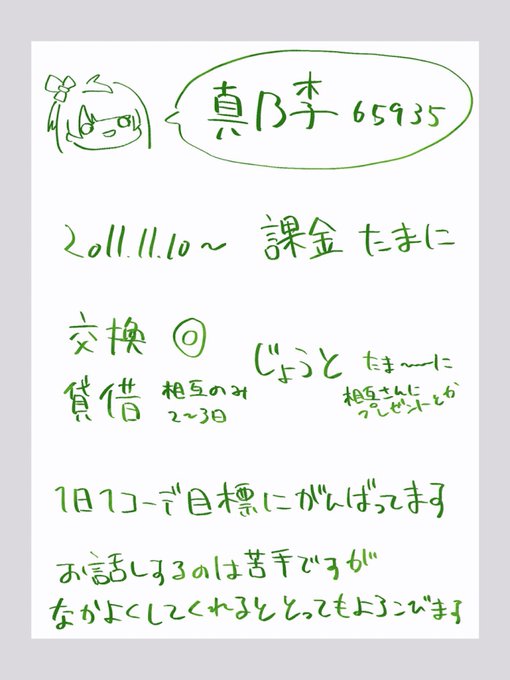 真乃李 65935
2011.11.10～ 課金 たまに
交換 ◎
貸借 相互のみ
2～3日
じょうと たま〜〜に
相互さんに
プレゼントとか
1日1コーデ目標にがんばってます
お話しするのは苦手ですが
なかよくしてくれるととってもよろこびます